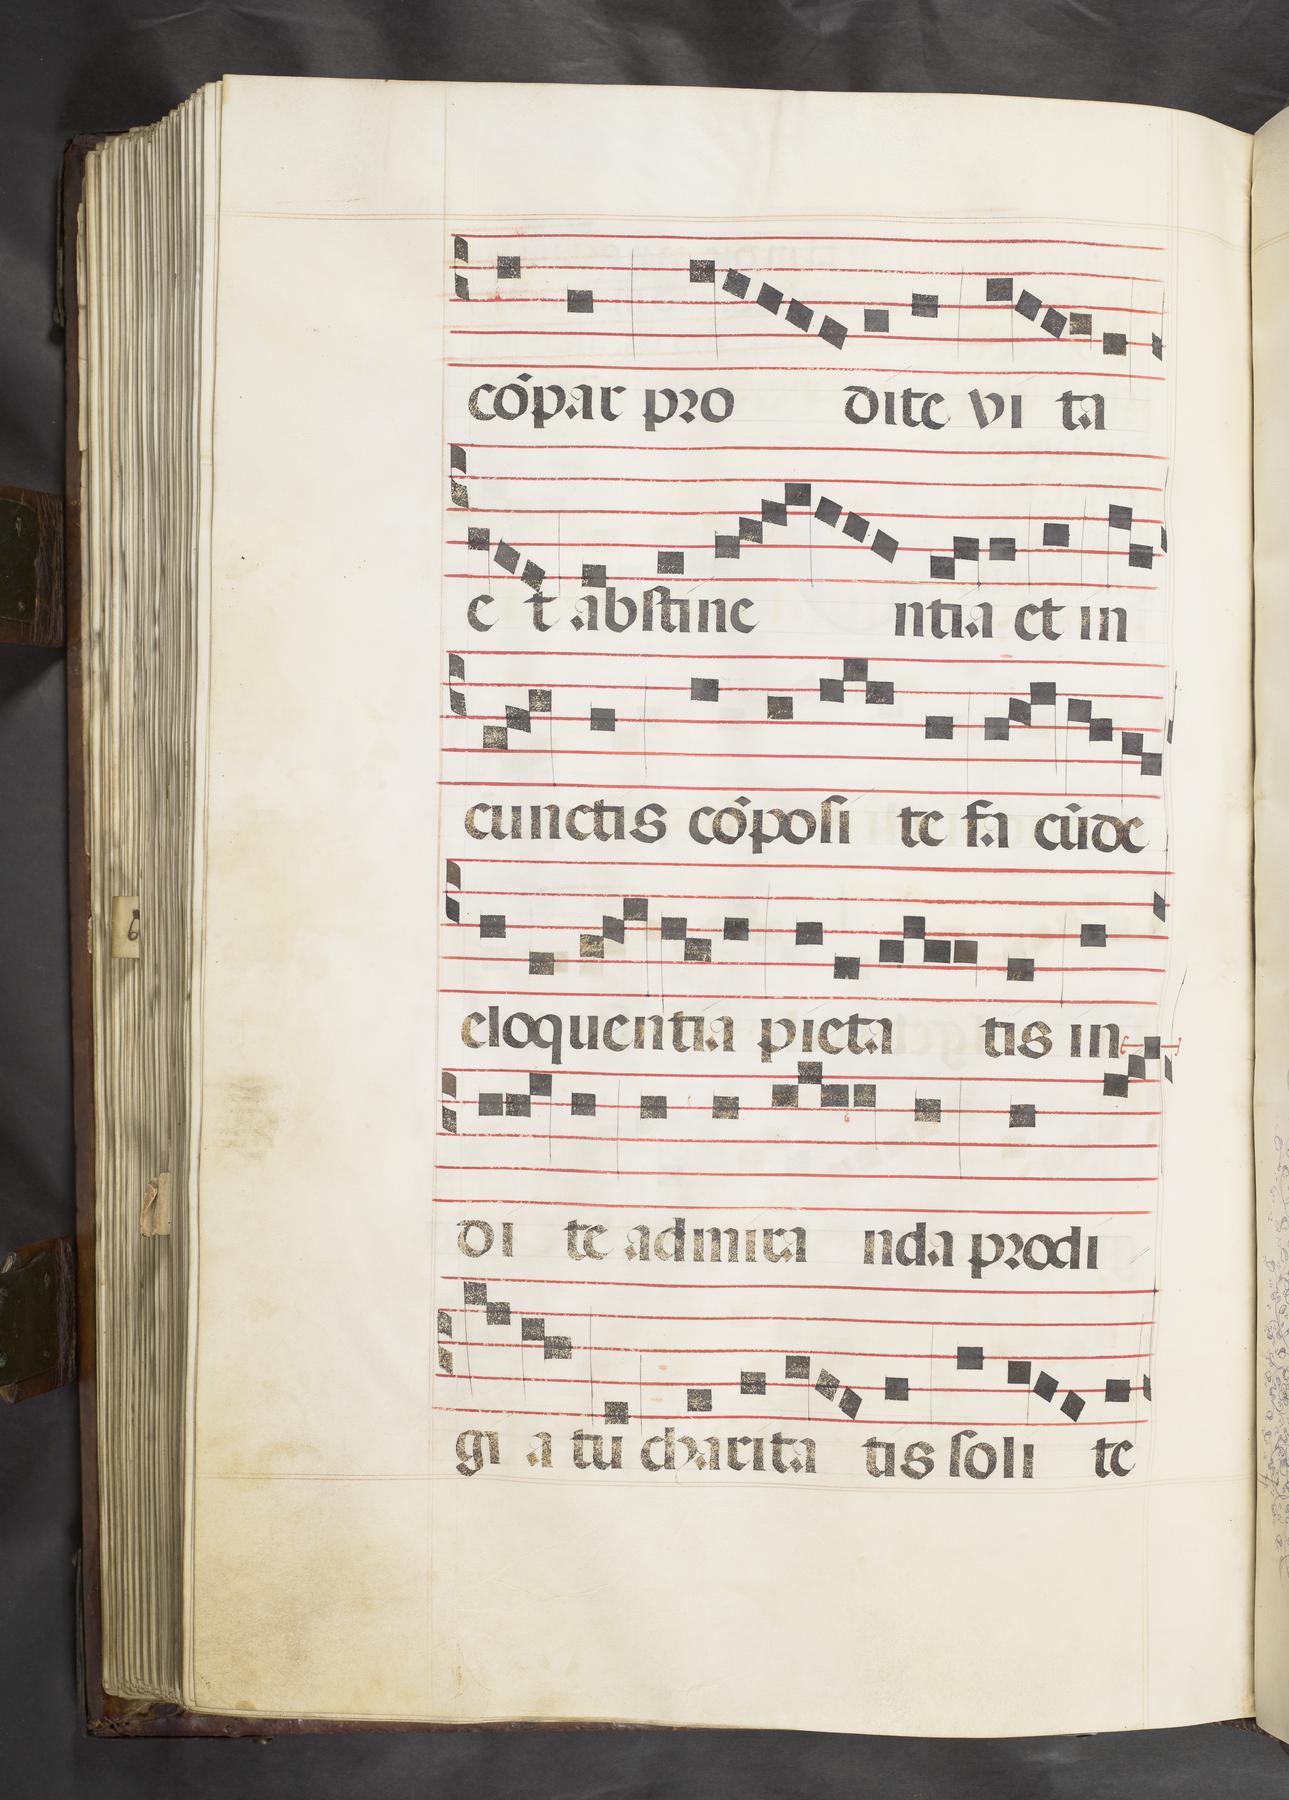 cōpar pro dite vi ta
e t abstine ntia et in
cunctis cōposi te fa cūde
eloquentia pieta tis in
di te admira nda prodi
gi a tu charita tis soli te
6